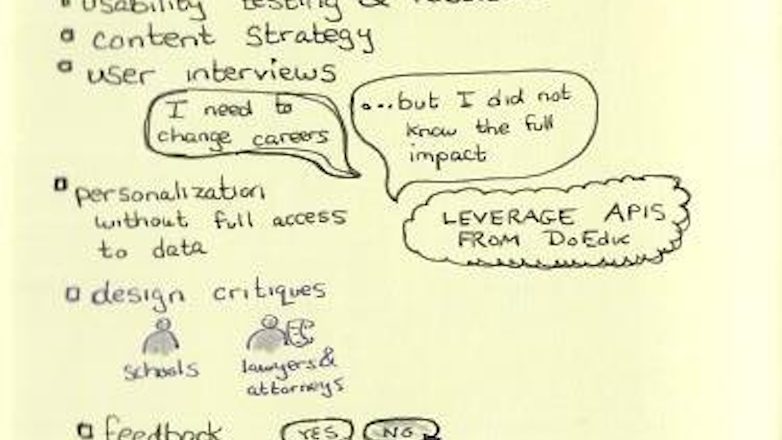 usability testing &
content strategy
user interviews
I need to
change careers
...but I did not
know the full
impact
personalization
without full access
to data
LEVERAGE APIS
FROM DoEduc
design critiques
schools
lawyers &
attorneys
feedback
YES
NO